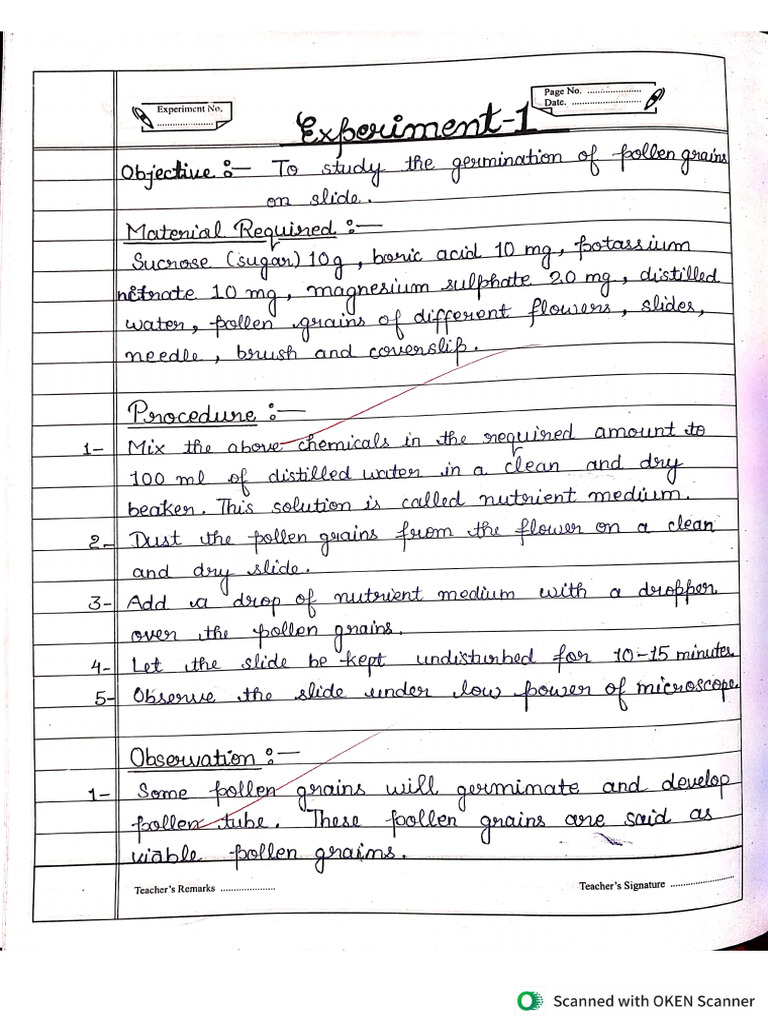 Experiment No. ....................
Page No. ....................
Date. ....................
Experiment-1
Objective :- To study the germination of pollen grains
on slide.
Material Required :-
Sucrose (sugar) 10g, boric acid 10 mg, potassium
nitrate 10 mg, magnesium sulphate 20 mg, distilled
water, pollen grains of different flowers, slides,
needle, brush and coverslip.
Procedure :-
1- Mix the above chemicals in the required amount to
100 ml of distilled water in a clean and dry
beaker. This solution is called nutrient medium.
2- Dust the pollen grains from the flower on a clean
and dry slide.
3- Add a drop of nutrient medium with a dropper
over the pollen grains.
4- Let the slide be kept undisturbed for 10-15 minutes.
5- Observe the slide under low power of microscope.
Observation :-
1- Some pollen grains will germimate and develop
pollen tube. These pollen grains are said as
viable pollen grains.
Teacher's Remarks .................... Teacher's Signature ....................
Scanned with OKEN Scanner